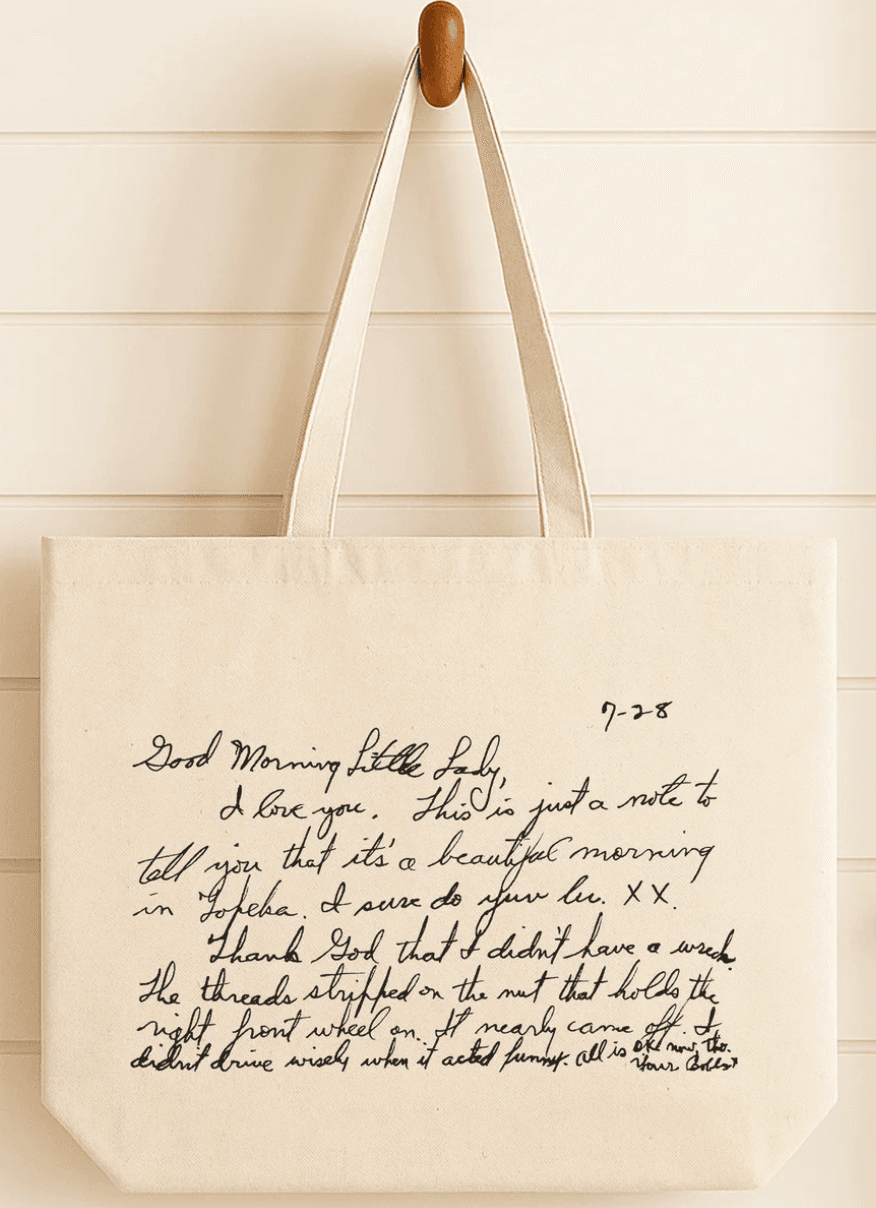 7-28
Good Morning Little Lady,
I love you. This is just a note to
tell you that it's a beautiful morning
in Topeka. I sure do yuv lu. XX.
Thank God that I didn't have a wreck.
The threads stripped on the nut that holds the
right front wheel on. It nearly came off. I
didn't drive wisely when it acted funny. All is OK now, tho.
Your